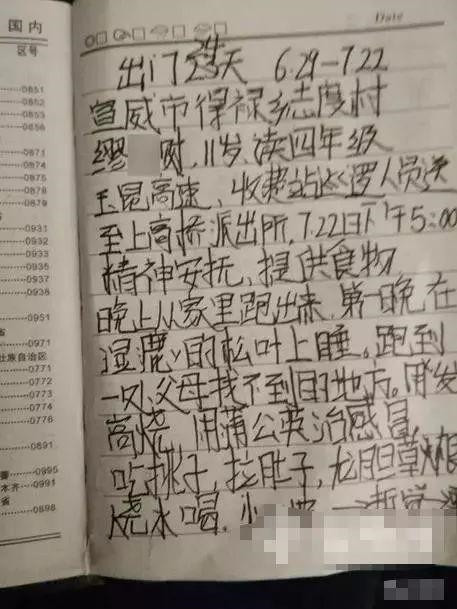 国内
区号
0851
0852
0853
0856
0871
0874
0875
0876
0878
0879
0931
0932
0933
0935
0937
0938
0951
省
0971
壮族自治区
0771
0772
0773
0774
0776
0891
0995
木齐 0991
省
0898
Date
出门23天 6.29-7.22
宣威市得禄乡志度村
缪 财，11岁，读四年级
玉昆高速，收费站巡逻人员送
至上高桥派出所，7.22日下午5:00
精神安抚，提供食物
晚上从家里跑出来，第一晚在
湿鹿的松叶上睡。跑到
一处父母找不到的地方。用发
高烧，用蒲公英治感冒，
吃挑子，拉肚子，龙胆草根
烧水喝。